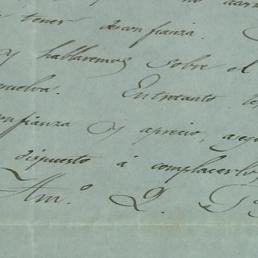 tener desconfianza.
y hablaremos sobre el
suelva. Entretanto
confianza y aprecio,
dispuesto á complacerle
Atm.º Q.